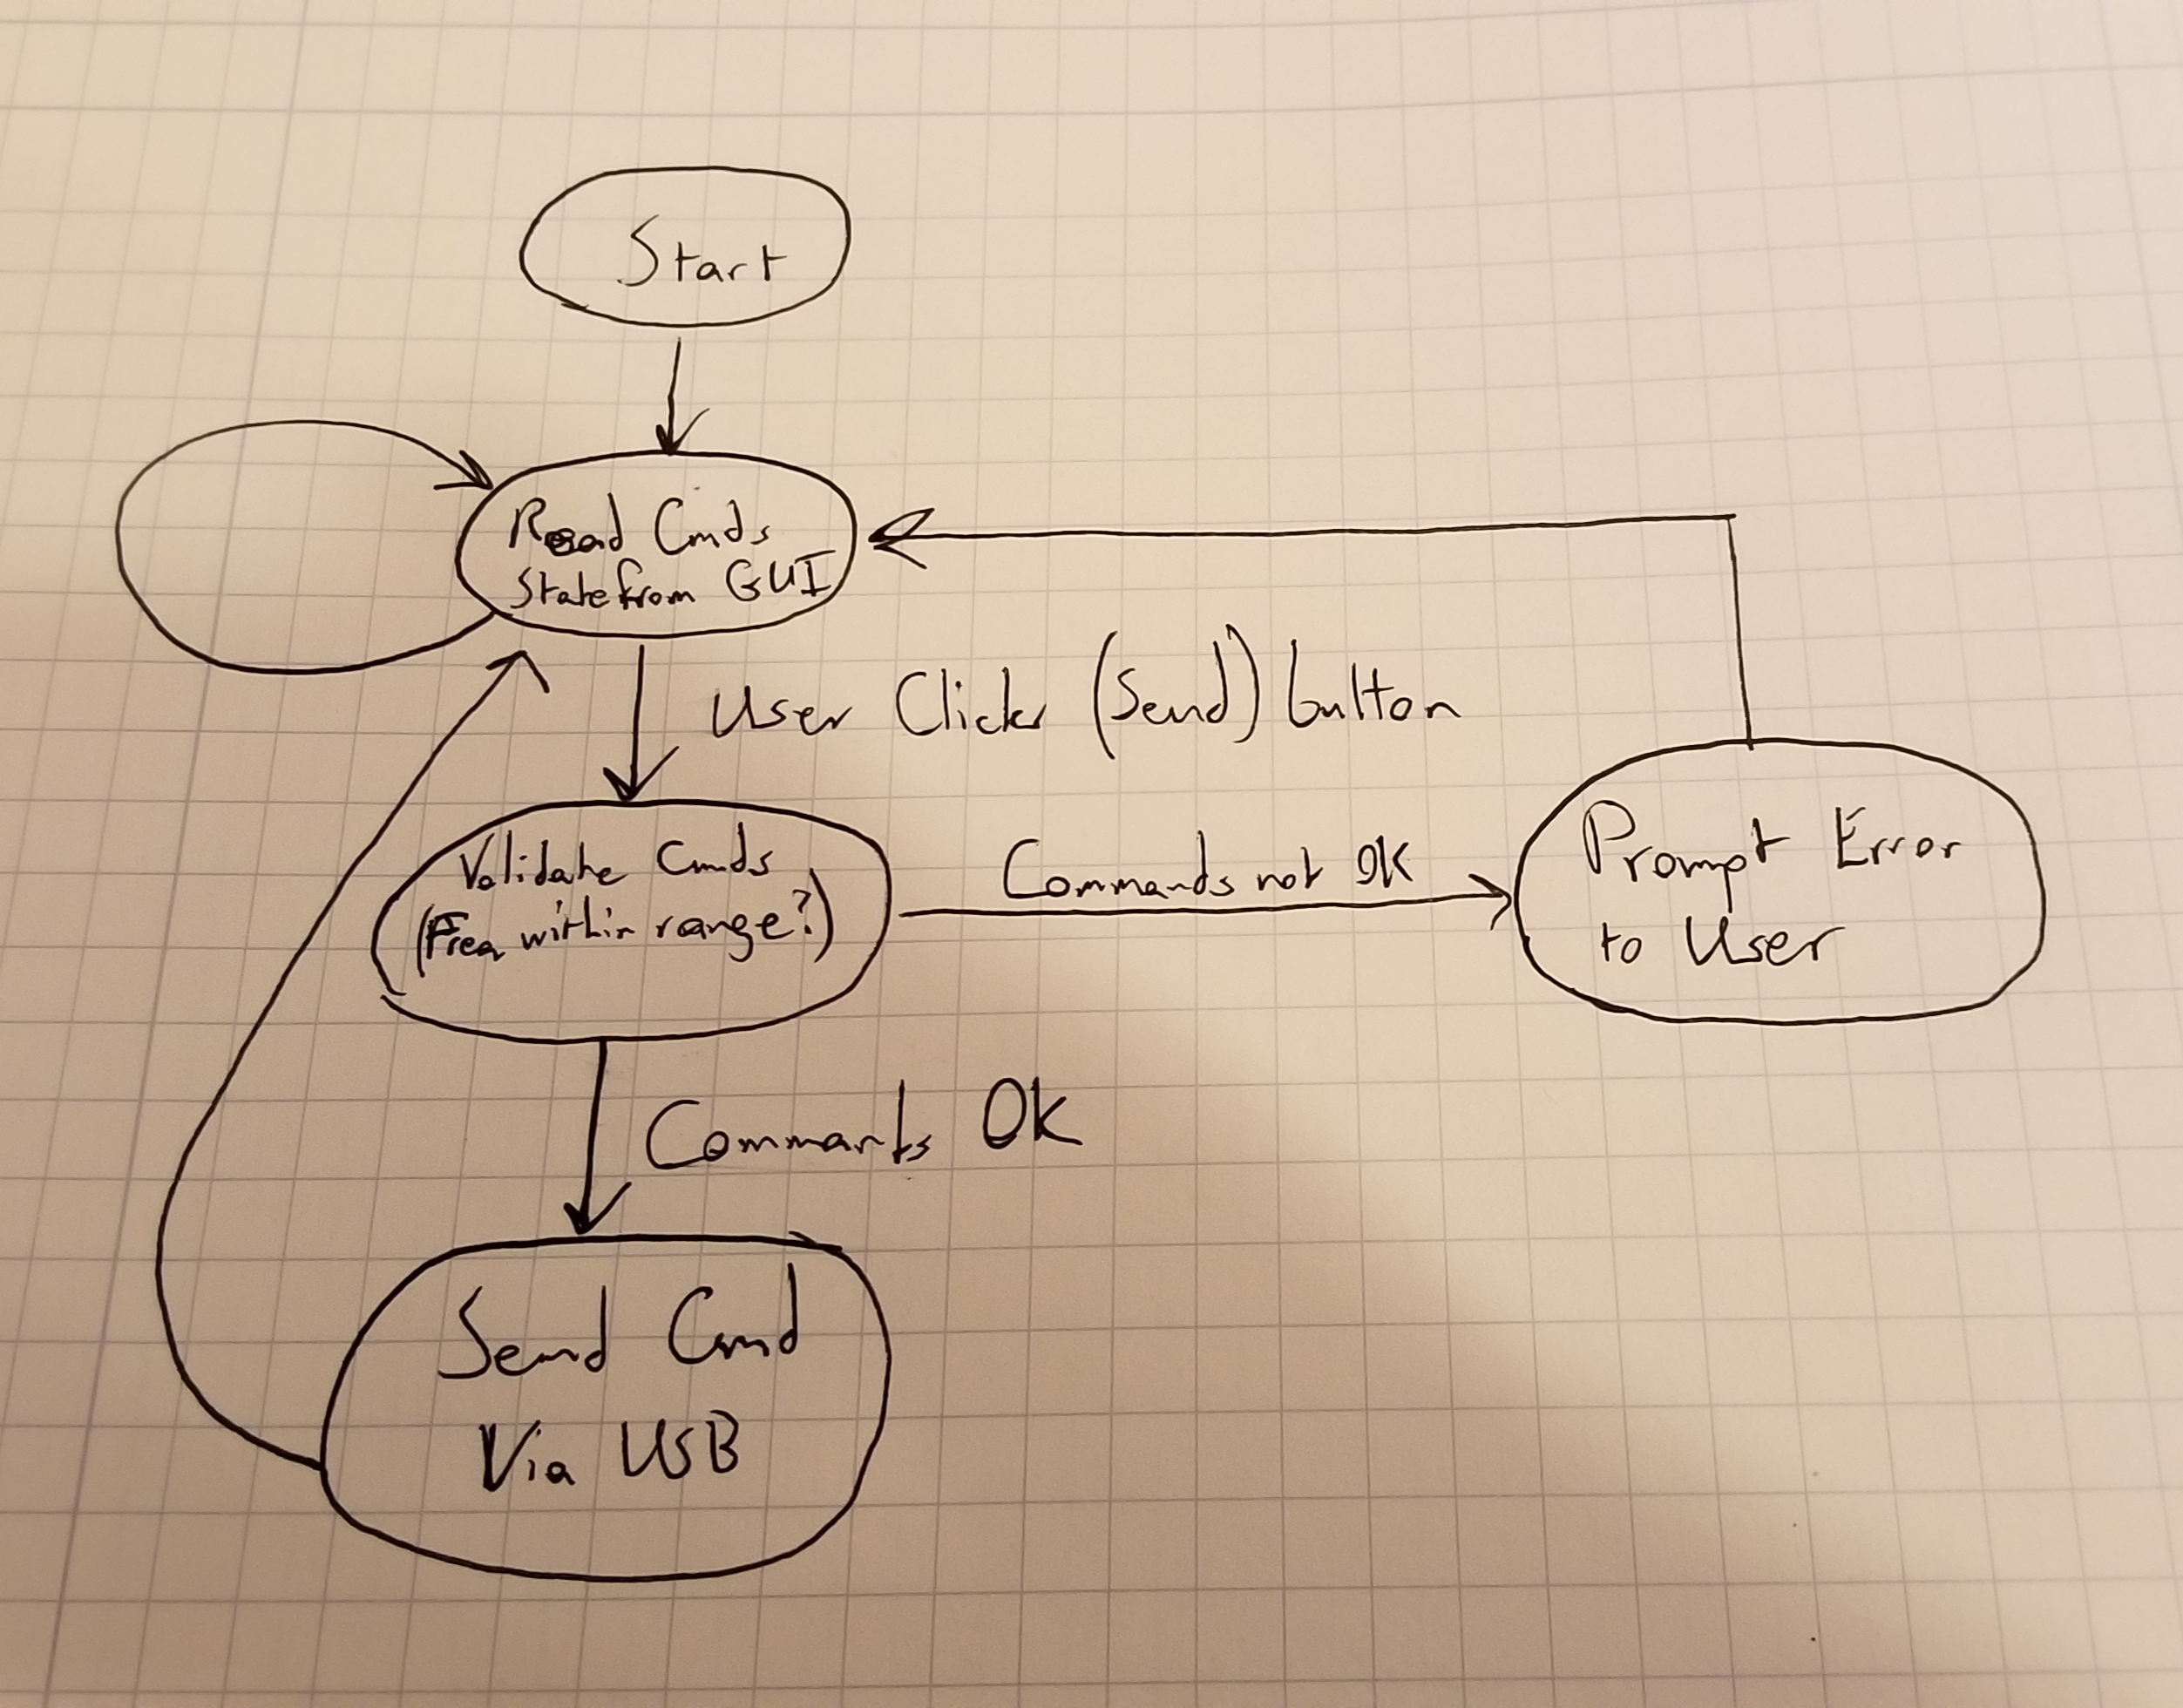 Start
Read Cmds
State from GUI
User Clicks (Send) button
Validate Cmds
(Freq within range?)
Commands not OK
Prompt Error
to User
Commants OK
Send Cmd
Via USB